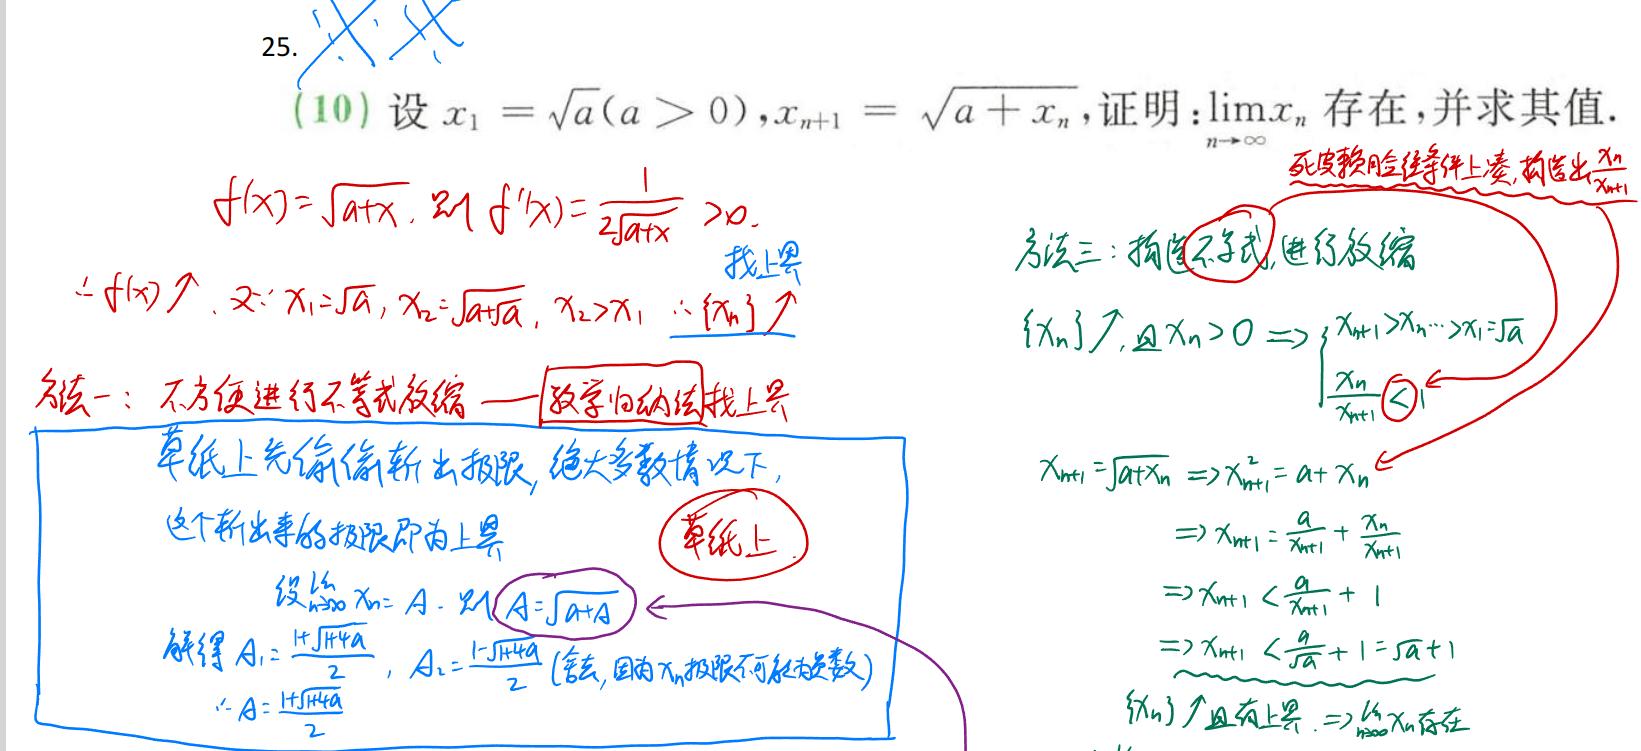 25.
(10) 设 x₁ = √a(a > 0), xₙ₊₁ = √(a + xₙ), 证明: lim_{n→∞} xₙ 存在, 并求其值.
f(x) = √(a+x). 则 f'(x) = 1/(2√(a+x)) > 0.
∴ f(x)↗. 又∵ x₁ = √a, x₂ = √(a+√a), x₂ > x₁ ∴ {xₙ}↗
找上界
方法一: 不方便进行不等式放缩 —— 数学归纳法找上界
草纸上先偷偷斩出极限, 绝大多数情况下,
这个斩出来的极限即为上界
草纸上
设 lim_{n→∞} xₙ = A. 则 A = √(a+A)
解得 A₁ = (1+√(1+4a))/2, A₂ = (1-√(1+4a))/2 (舍去, 因为 xₙ 极限不可能为负数)
∴ A = (1+√(1+4a))/2
死皮赖脸往条件上凑, 构造出 xₙ/xₙ₊₁
方法三: 构造不等式, 进行放缩
{xₙ}↗, 且 xₙ > 0 ⇒ { xₙ₊₁ > xₙ ⋯ > x₁ = √a
xₙ/xₙ₊₁ < 1
xₙ₊₁ = √(a+xₙ) ⇒ xₙ₊₁² = a + xₙ
⇒ xₙ₊₁ = a/xₙ₊₁ + xₙ/xₙ₊₁
⇒ xₙ₊₁ < a/xₙ₊₁ + 1
⇒ xₙ₊₁ < a/√a + 1 = √a + 1
{xₙ}↗ 且有上界. ⇒ lim_{n→∞} xₙ 存在